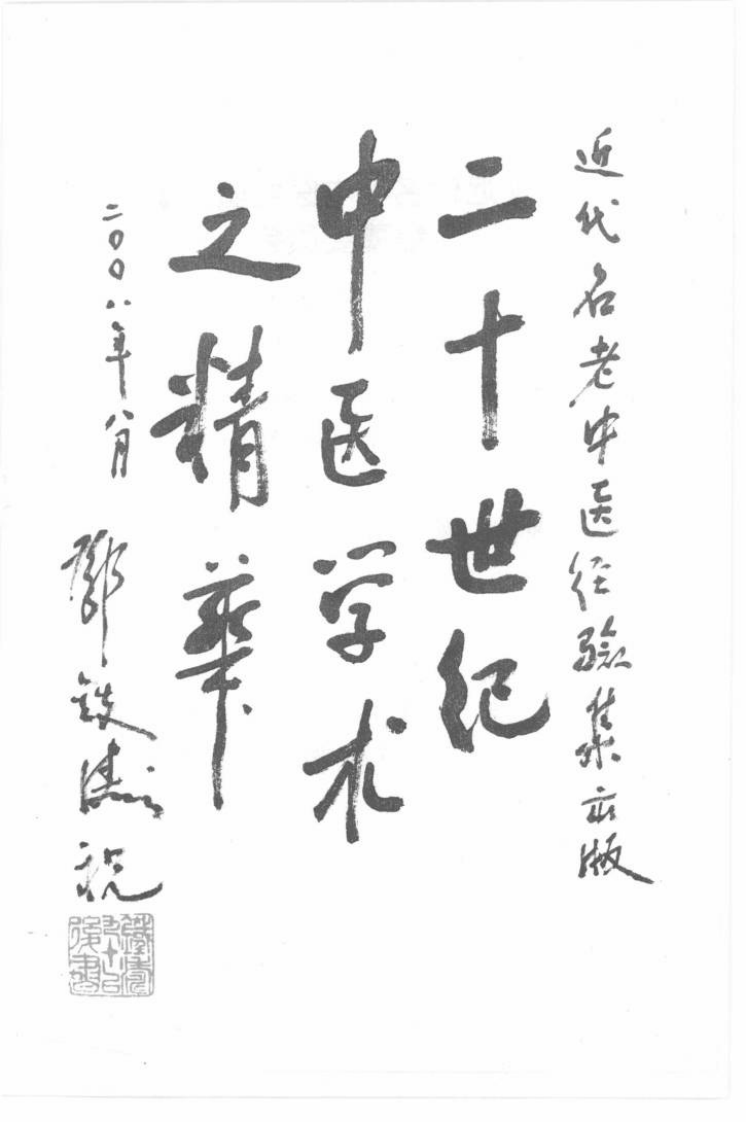 近代名老中医经验集出版
二十世纪
中医学术
之精华
二〇〇八年八月
邓铁涛祝
铁涛九十以后书